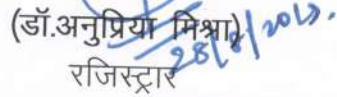 (डॉ.अनुप्रिया मिश्रा)
28/8/2017.
रजिस्ट्रार